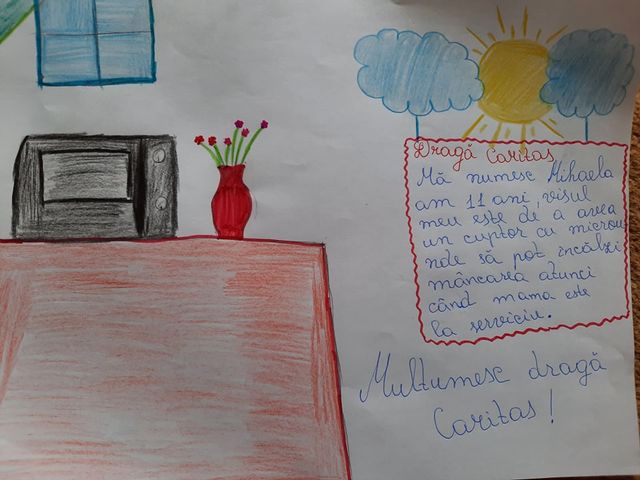 Dragă Caritas
Mă numesc Mihaela
am 11 ani, visul
meu este de a avea
un cuptor cu microu
nde să pot încălzi
mâncarea atunci
când mama este
la serviciu.
Multumesc dragă
Caritas!